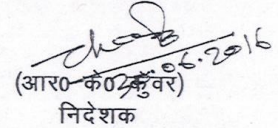 06.2016
(आर0 के0 कुँवर)
निदेशक